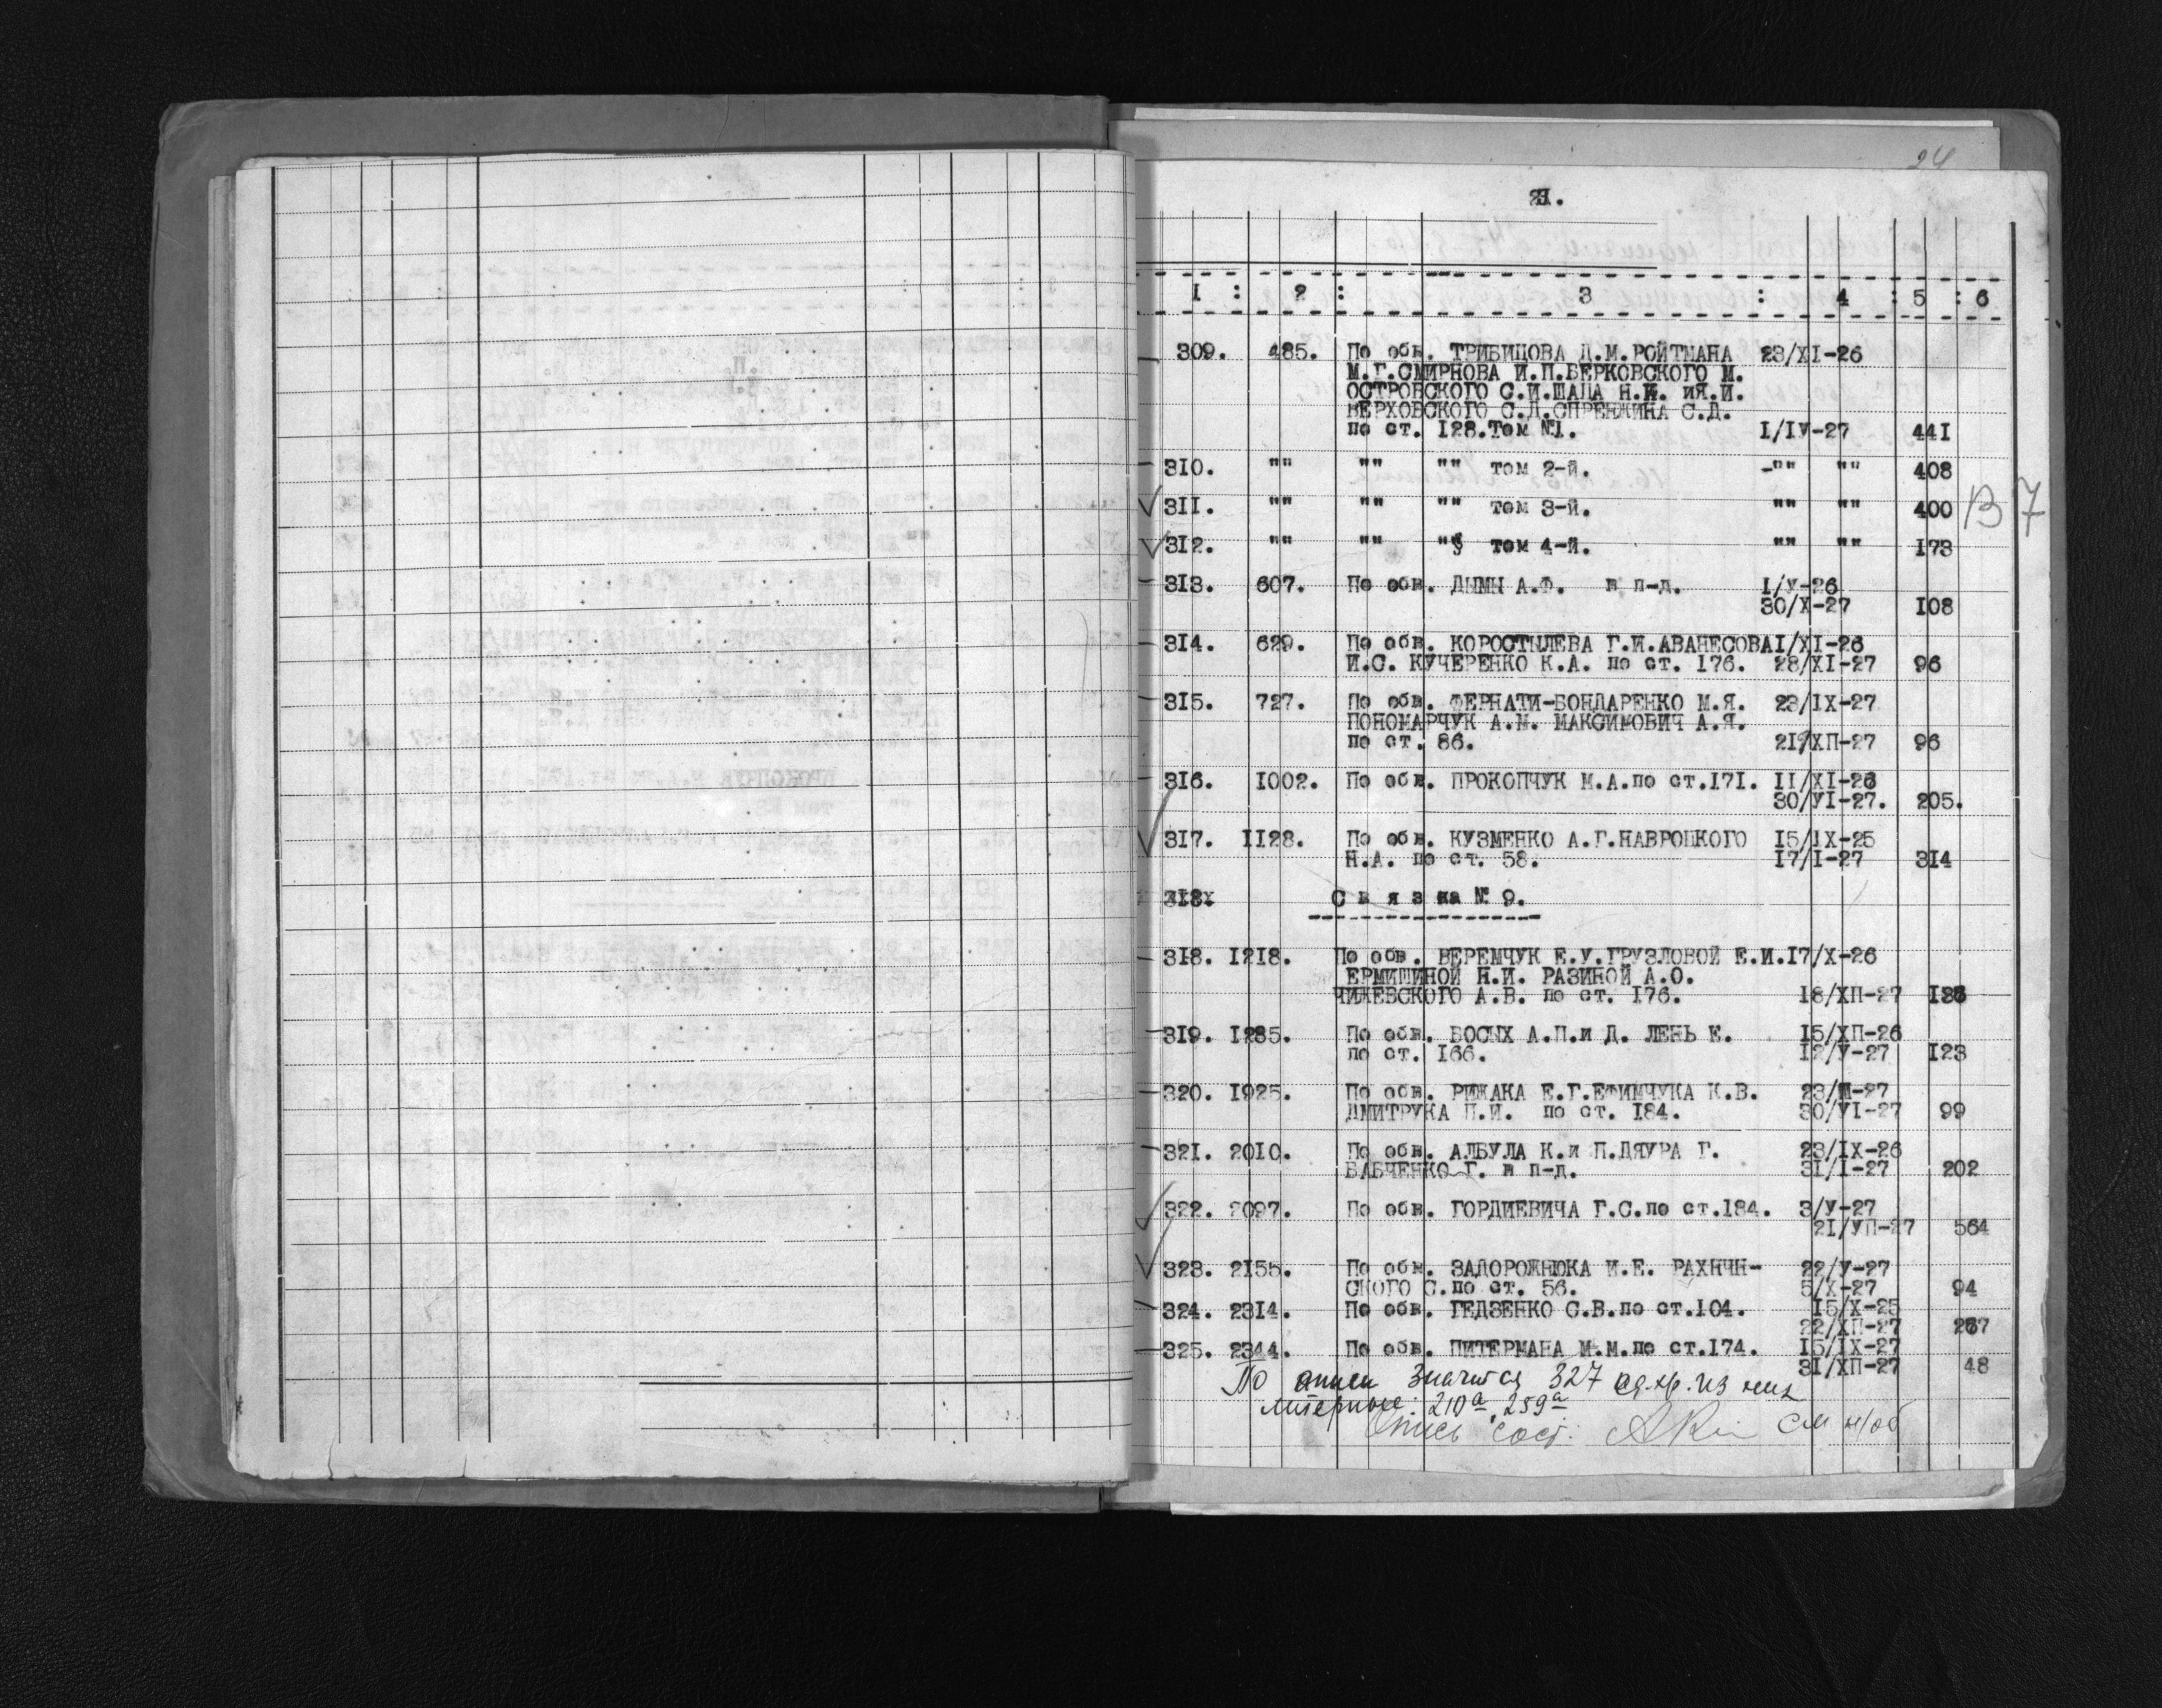 24
21.
1 : 2 : 3 : 4 : 5 : 6
309. 485. По обв. ТРИБИЦОВА Д.М.РОЙТМАНА 23/XI-26
М.Г.СМИРНОВА И.П.БЕРКОВСКОГО М.
ОСТРОВСКОГО С.И.ШАЦА Н.И. иЯ.И.
ВЕРХОВСКОГО С.Д.СПРЕНЖИНА С.Д.
по ст. 128.Том №1. I/IУ-27 441
310. "" "" "" том 2-й. -"" "" 408
311. "" "" "" том 3-й. "" "" 400
В 7
312. "" "" "" том 4-й. "" "" 173
313. 607. По обв. ДЫМЫ А.Ф. в п-д. I/У-26
30/X-27 108
314. 629. По обв. КОРОСТЫЛЕВА Г.И.АВАНЕСОВА I/XI-26
И.С. КУЧЕРЕНКО К.А. по ст. 176. 28/XI-27 96
315. 727. По обв. ФЕРНАТИ-БОНДАРЕНКО М.Я. 23/IX-27
ПОНОМАРЧУК А.М. МАКСИМОВИЧ А.Я.
по ст. 86. 21/ХП-27 96
316. 1002. По обв. ПРОКОПЧУК М.А.по ст.171. 11/XI-26
30/УI-27. 205.
317. 1128. По обв. КУЗМЕНКО А.Г.НАВРОЦКОГО 15/IX-25
Н.А. по ст. 58. 17/I-27 314
318. С в я з ка № 9.
318. 1218. По обв. ВЕРЕМЧУК Е.У.ГРУЗЛОВОЙ Е.И. 17/X-26
ЕРМИШИНОЙ Н.И. РАЗИНОЙ А.О.
ЧИЖЕВСКОГО А.В. по ст. 176. 18/ХП-27
319. 1285. По обв. БОСЫХ А.П.и Д. ЛЕНЬ Е. 15/ХП-26
по ст. 166. 12/У-27 123
320. 1925. По обв. РИЖАКА Е.Г.ЕФИМЧУКА К.В. 23/Ш-27
ДМИТРУКА П.И. по ст. 184. 30/УI-27 99
321. 2010. По обв. АЛБУЛА К.и П.ДЯУРА Г. 23/IX-26
БАБЧЕНКО Г. в п-д. 31/I-27 202
322. 2097. По обв. ГОРДИЕВИЧА Г.С.по ст.184. 3/У-27
21/УП-27 564
323. 2155. По обв. ЗАДОРОЖНЮКА И.Е. РАХНЧН-
22/У-27
СКОГО С.по ст. 56. 5/X-27 94
324. 2314. По обв. ГЕДЗЕНКО С.В.по ст.104. 15/X-25
22/ХП-27 267
325. 2344. По обв. ПИТЕРМАНА М.М.по ст.174. 15/IX-27
31/ХП-27 48
По описи значится 327 ед.хр. из них
литерные: 210а, 259а
Опись сост. см н/об